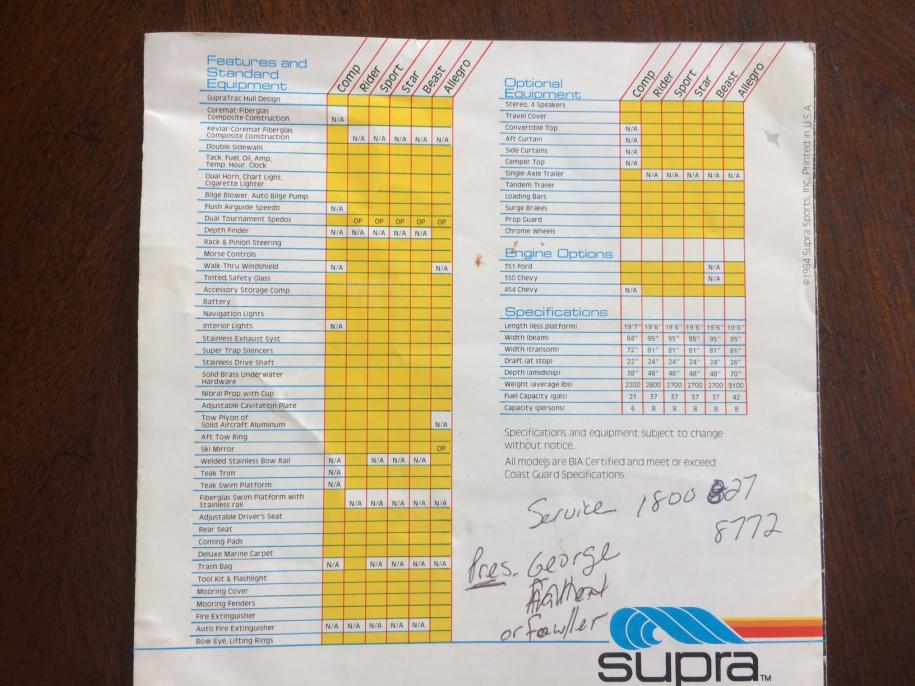 Features and
Standard
Equipment
Comp Rider Sport Star Beast Allegro
SupraTrac Hull Design
Coremat-Fiberglas
Composite Construction N/A
Kevlar-Coremat-Fiberglas
Composite Construction N/A N/A N/A N/A N/A
Double Sidewalls
Tack, Fuel, Oil, Amp,
Temp, Hour, Clock
Dual Horn, Chart Light,
Cigarette Lighter
Bilge Blower, Auto Bilge Pump
Flush Airguide Speedo N/A
Dual Tournament Spedos OP OP OP OP OP
Depth Finder N/A N/A N/A N/A N/A
Rack & Pinion Steering
Morse Controls
Walk-Thru Windshield N/A N/A
Tinted Safety Glass
Accessory Storage Comp.
Battery
Navigation Lights
Interior Lights N/A
Stainless Exhaust Syst
Super Trap Silencers
Stainless Drive Shaft
Solid Brass Underwater
Hardware
Nibral Prop with Cup
Adjustable Cavitation Plate
Tow Plyon of
Solid Aircraft Aluminum N/A
Aft Tow Ring
Ski Mirror OP
Welded Stainless Bow Rail N/A N/A N/A N/A
Teak Trim N/A
Teak Swim Platform N/A
Fiberglas Swim Platform with
Stainless rail N/A N/A N/A N/A N/A
Adjustable Driver's Seat
Rear Seat
Coming Pads
Deluxe Marine Carpet
Trash Bag N/A N/A N/A N/A N/A
Tool Kit & Flashlight
Mooring Cover
Mooring Fenders
Fire Extinguisher
Auto Fire Extinguisher N/A N/A N/A N/A N/A
Bow Eye, Lifting Rings
Optional
Equipment
Comp Rider Sport Star Beast Allegro
Stereo, 4 Speakers
Travel Cover
Convertible Top N/A
Aft Curtain N/A
Side Curtains N/A
Camper Top N/A
Single-Axle Trailer N/A N/A N/A N/A N/A
Tandem Trailer
Loading Bars
Surge Brakes
Prop Guard
Chrome Wheels
Engine Options
351 Ford N/A
350 Chevy N/A
454 Chevy N/A
Specifications
Length (less platform) 19'7" 19'6" 19'6" 19'6" 19'6" 19'6"
Width (beam) 84" 95" 95" 95" 95" 95"
Width (transom) 72" 81" 81" 81" 81" 81"
Draft (at stop) 22" 24" 24" 24" 24" 26"
Depth (amidship) 38" 48" 48" 48" 48" 70"
Weight (average lbs) 2200 2800 2700 2700 2700 3100
Fuel Capacity (gals) 21 37 37 37 37 42
Capacity (persons) 6 8 8 8 8 8
Specifications and equipment subject to change
without notice.
All models are BIA Certified and meet or exceed
Coast Guard Specifications.
Service 1800 827
8772
Pres. George
or fowller
supra™
©1984 Supra Sports, Inc. Printed in U.S.A.